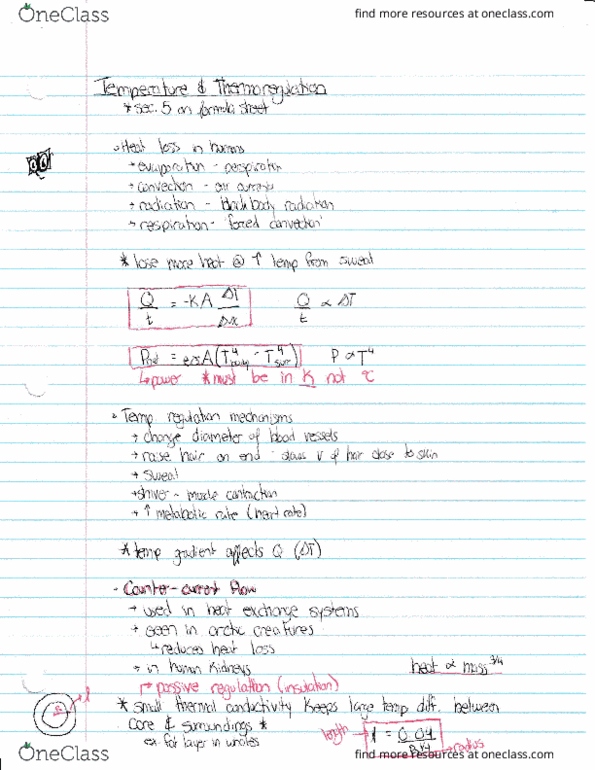 OneClass
find more resources at oneclass.com
Temperature & Thermoregulation
* sec. 5 on formula sheet
Heat loss in humans
→ evaporation - perspiration
→ convection - air currents
→ radiation - blackbody radiation
→ respiration - 'forced convection'
* lose more heat @ ↑ temp from sweat
Q/t = -KA ΔT/Δx   Q/t ∝ ΔT
Pnet = eσA(T⁴body - T⁴surr)   P ∝ T⁴
↳ power   * must be in K not °C
Temp. regulation mechanisms
→ change diameter of blood vessels
→ raise hair on end - slows v of air close to skin
→ sweat
→ shiver - muscle contraction
→ ↑ metabolic rate (heart rate)
* temp gradient affects Q (ΔT)
- Counter-current flow
→ used in heat exchange systems
→ seen in arctic creatures
↳ reduces heat loss
→ in human kidneys
heat ∝ mass^3/4
passive regulation (insulation)
* small thermal conductivity keeps large temp diff. between
core & surroundings *
ex. fat layer in whales
length
radius
OneClass
find more resources at oneclass.com